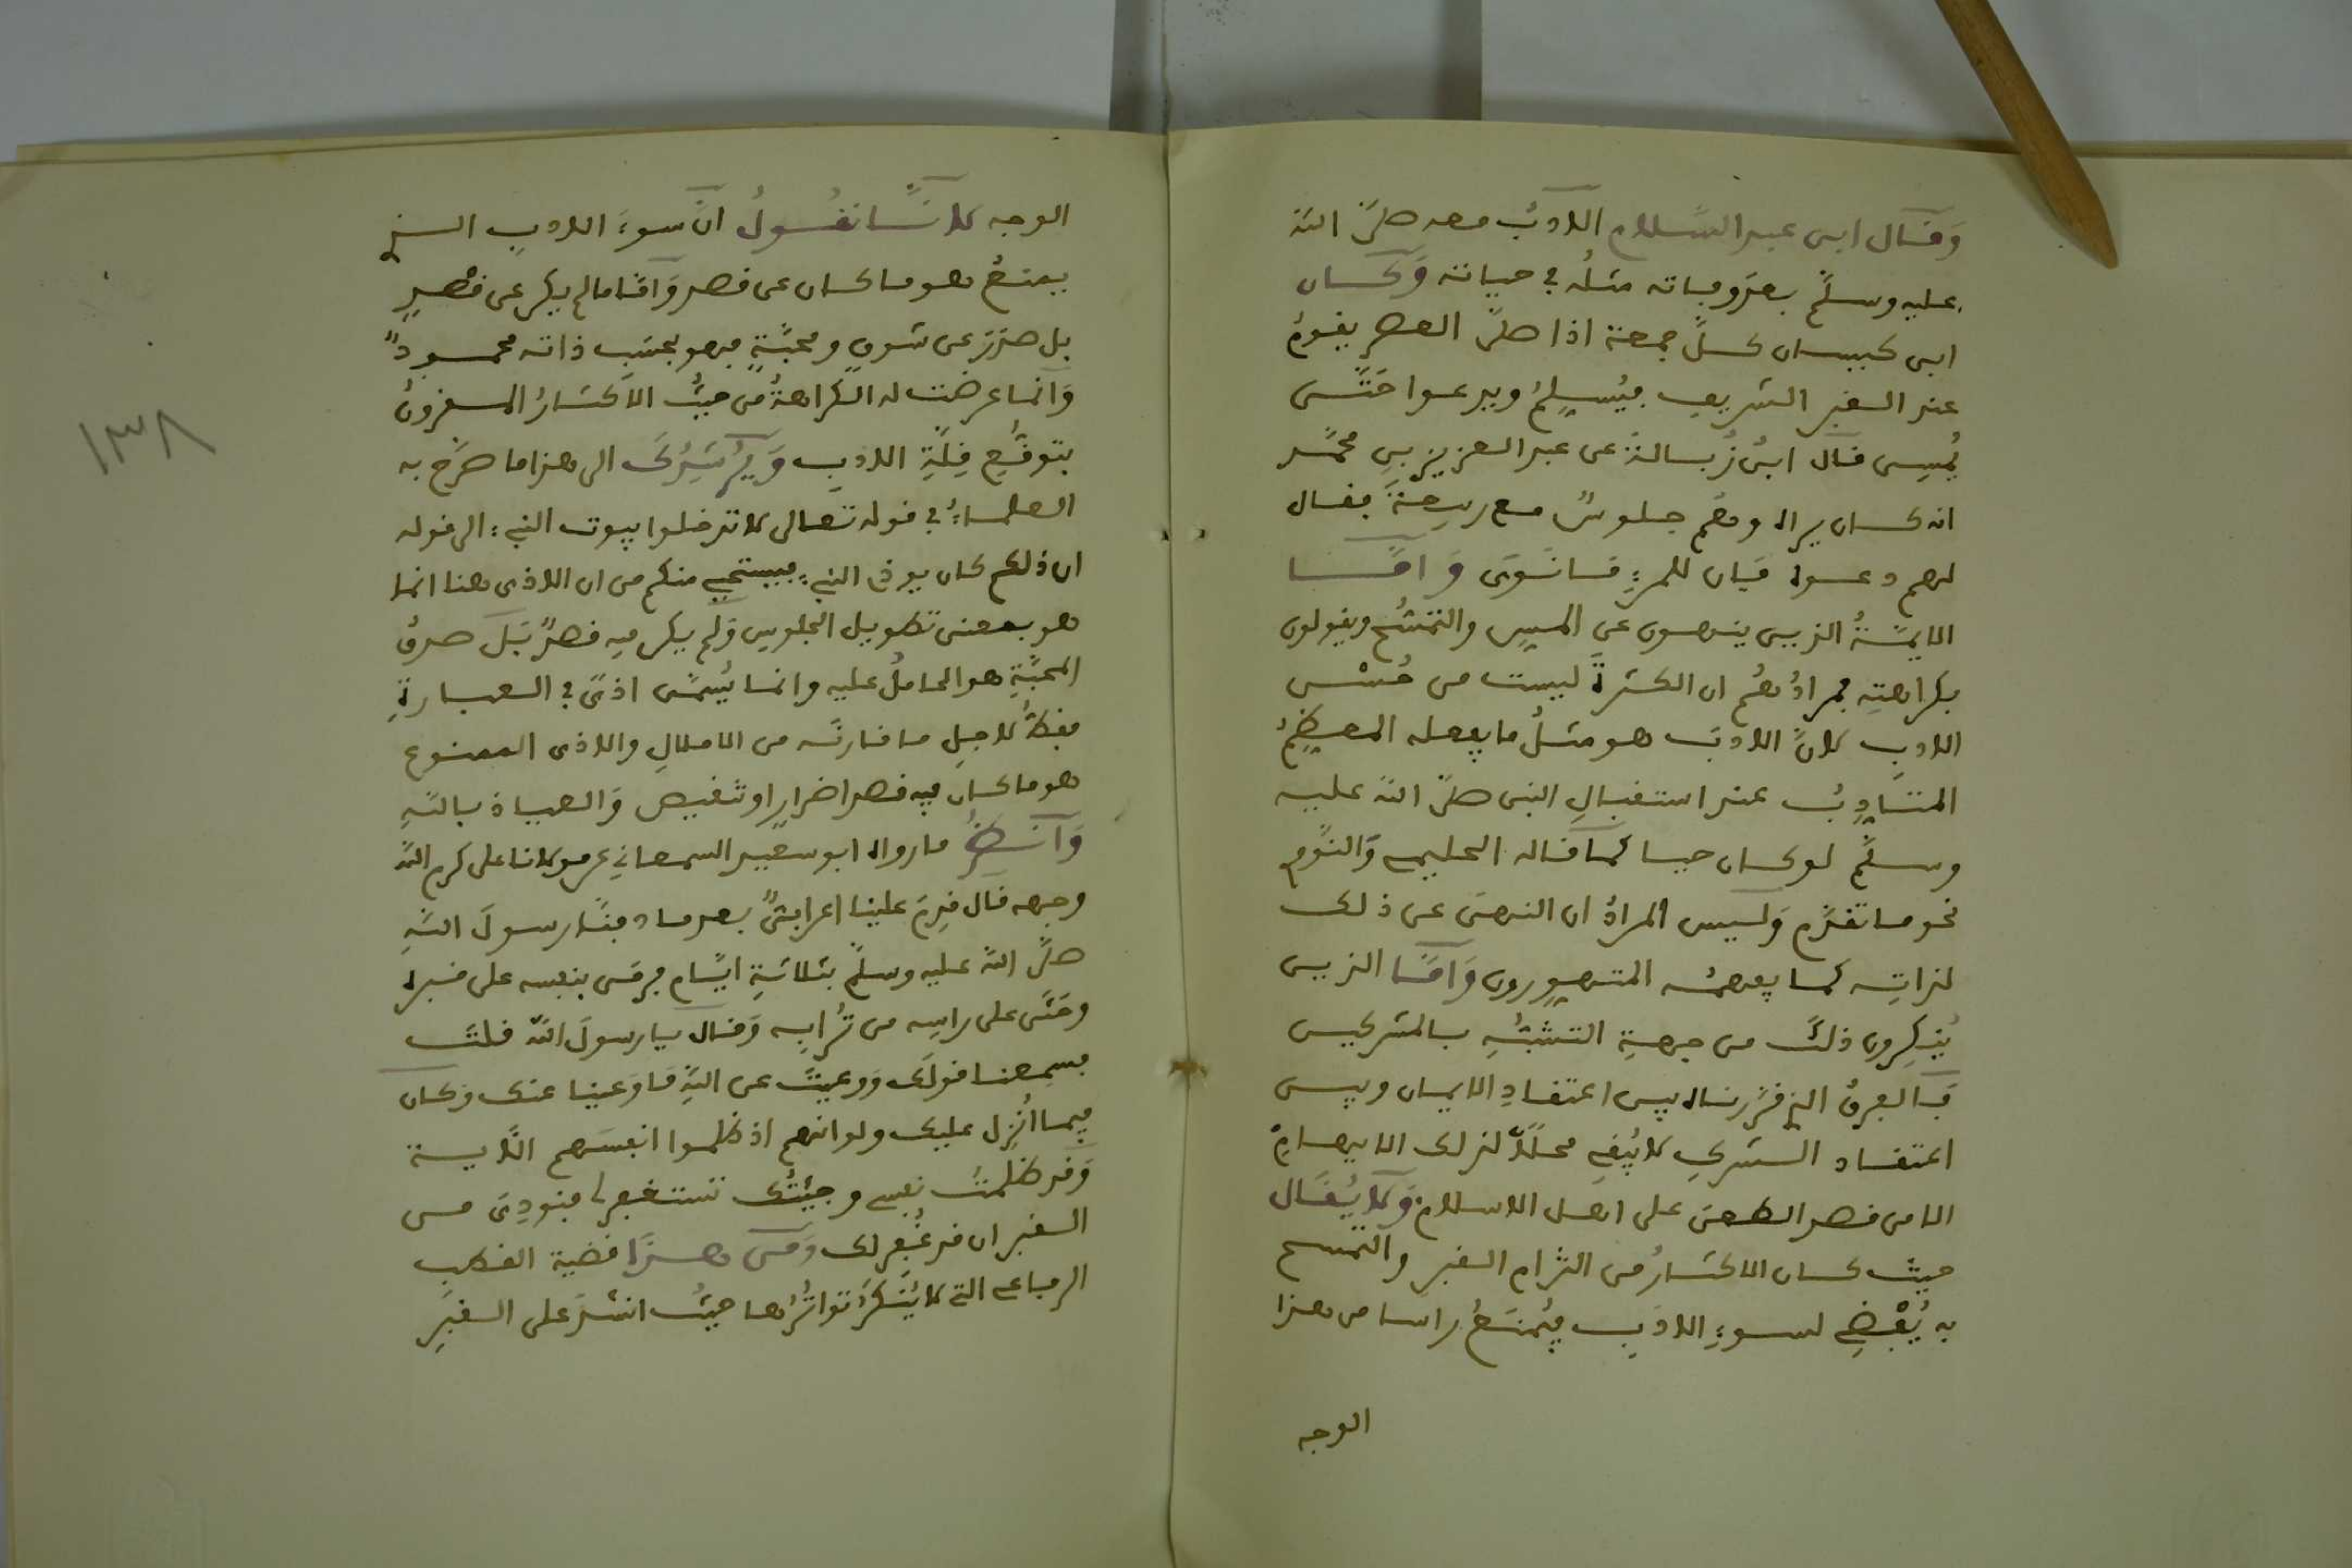 وَقَال ابن عبد السَّلام الادبُ معه صلَّى اللّٰه
عليه وسلَّم بعدَ وفاته مثلُه في حياته وَكان
ابن كبسان كلَّ جمعة اذا صلَّى العصر يقومُ
عند القبر الشريف فيُسلِّمُ ويدعوا حتَّى
يُمسِى قال ابنُ زُبالةَ عن عبد العزيز بنِ محمَّد
انه كان يراه وهُم جلوسٌ مع ربيعةَ فقال
لهم دعوه فَإن للمرءِ مَا نَوَى وَامَّا
الايمَّةُ الذين ينهون عن المسِّ والتمسُّح ويقولون
بكراهتِه فمرادُهُم ان الكثرةَ ليست من حُسْن
الادبِ لانَّ الادبَ هو مثلُ ما يفعله المعظِّمُ
المتادِّبُ عند استقبالِ النبى صلَّى اللّٰه عليه
وسلَّم لو كان حيا كما قاله الحليمى وَالنوَّم
نحو ما تقدَّم وَليس المرادُ ان النهىَ عن ذلك
لذاتِه كما يفهمُه المتهوِّرون وَامَّا الذين
يُنكِرون ذلكَ من جهةِ التشبُّهِ بالمشركين
فَالفرقُ الذي قرَّرناه بين اعتقادِ الايمان وبين
اعتقاد الشركِ لا يُبقى محلًّا لذلك الايهامْ
الا من قصد الطعنَ على اهل الاسلامْ وَلا يُقَال
حيثُ كان الاكثارُ من التزام القبر والتمسح
به يُفْضِى لسوءِ الادَبِ فيُمنَعُ راسا من هذا
الوجه
الوجه لانَّا نقُولُ انَّ سوءَ الادبِ الذي
يمنعُ هو ما كان عن قصدٍ وَامَّا ما لم يكن عن قصْدٍ
بل صدَرَ عن شوقٍ ومحبَّةٍ فهو بحسَبِ ذاته محمودٌ
وَانما عرضت له الكراهةُ من حيثُ الاكثارُ المقرونُ
بتوقُّعِ قِلَّةِ الادبِ وَيُرشِدُكَ الى هذا ما صرَّح به
العلماءُ في قوله تعالى لا تدخلوا بيوت النبىِ الى قوله
ان ذلكم كان يوذى النبىء فيستحيى منكم من ان الاذى هنا انما
هو بمعنى تطويل الجلوسِ وَلم يكن فيه قصدٌ بَل صدقُ
المحبَّةِ هو الحاملُ عليه وانما يُسمَّى اذىً في العبارةِ
فقطُ لاجلِ ما قارنَه من الاملالِ والاذى الممنوع
هو ما كان فيه قصد اضرارٍ او تنقيص وَالعياذ باللّٰهِ
وَانظُر ما رواه ابو سعيد السمعانِي عن مولانا على كرم اللّٰه
وجهه قال قدِمَ علينا اعرابىٌّ بعد ما دفنَّا رسولَ اللّٰهِ
صلَّى اللّٰه عليه وسلَّم بثلاثةِ ايَّام فرمَى بنفسه على قبره
وحَثَى على راسِه من تُرابِه وَقال يا رسولَ اللّٰه قلتَ
فسمعنا قولَكَ وَوعيتَ عن اللّٰهِ مَا وَعينا عنك وَكان
فيما اُنزِل عليك ولو انهم اذ ظلموا انفسَهم الاٰيــة
وَقد ظلمتُ نفسى وجيئتُك تستغفر لى فنودِىَ من
القبر ان قد غُفِر لك وَمن هذَا قضية القطب
الرفاعى التي لا يُنكَرُ تواتُرُها حيثُ انشدَ على القبرِ
١٣٨